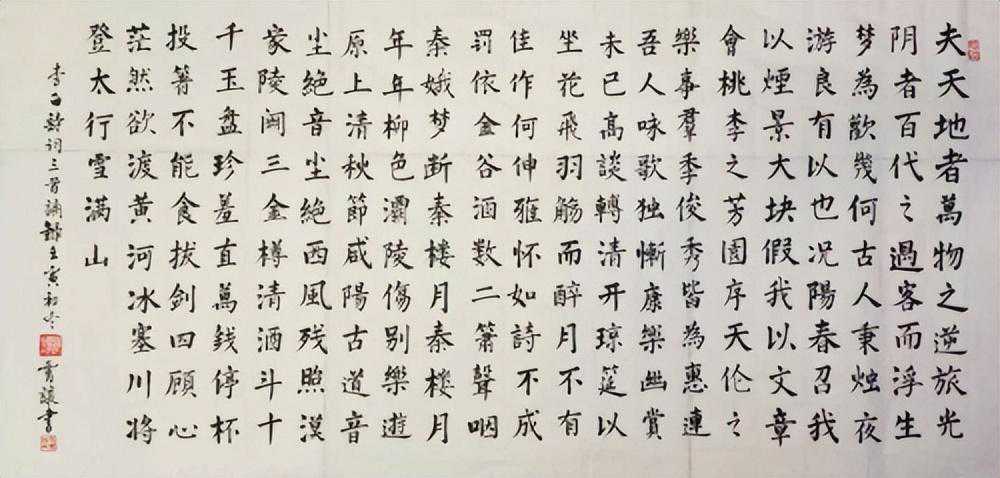 夫天地者萬物之逆旅光
阴者百代之過客而浮生
梦為歡幾何古人秉烛夜
游良有以也况陽春召我
以煙景大块假我以文章
會桃李之芳園序天伦之
樂事羣季俊秀皆為惠連
吾人咏歌独慚康樂幽賞
未已高談轉清开琼筵以
坐花飛羽觞而醉月不有
佳作何伸雅怀如詩不成
罚依金谷酒数二箫聲咽
秦娥梦断秦樓月秦樓月
年年柳色灞陵傷别樂遊
原上清秋節咸陽古道音
尘絕音尘絕西風残照漢
家陵闕三金樽清酒斗十
千玉盘珍羞直萬钱停杯
投箸不能食拔剑四顧心
茫然欲渡黄河冰塞川将
登太行雪满山
李白詩词三首壬寅初冬書